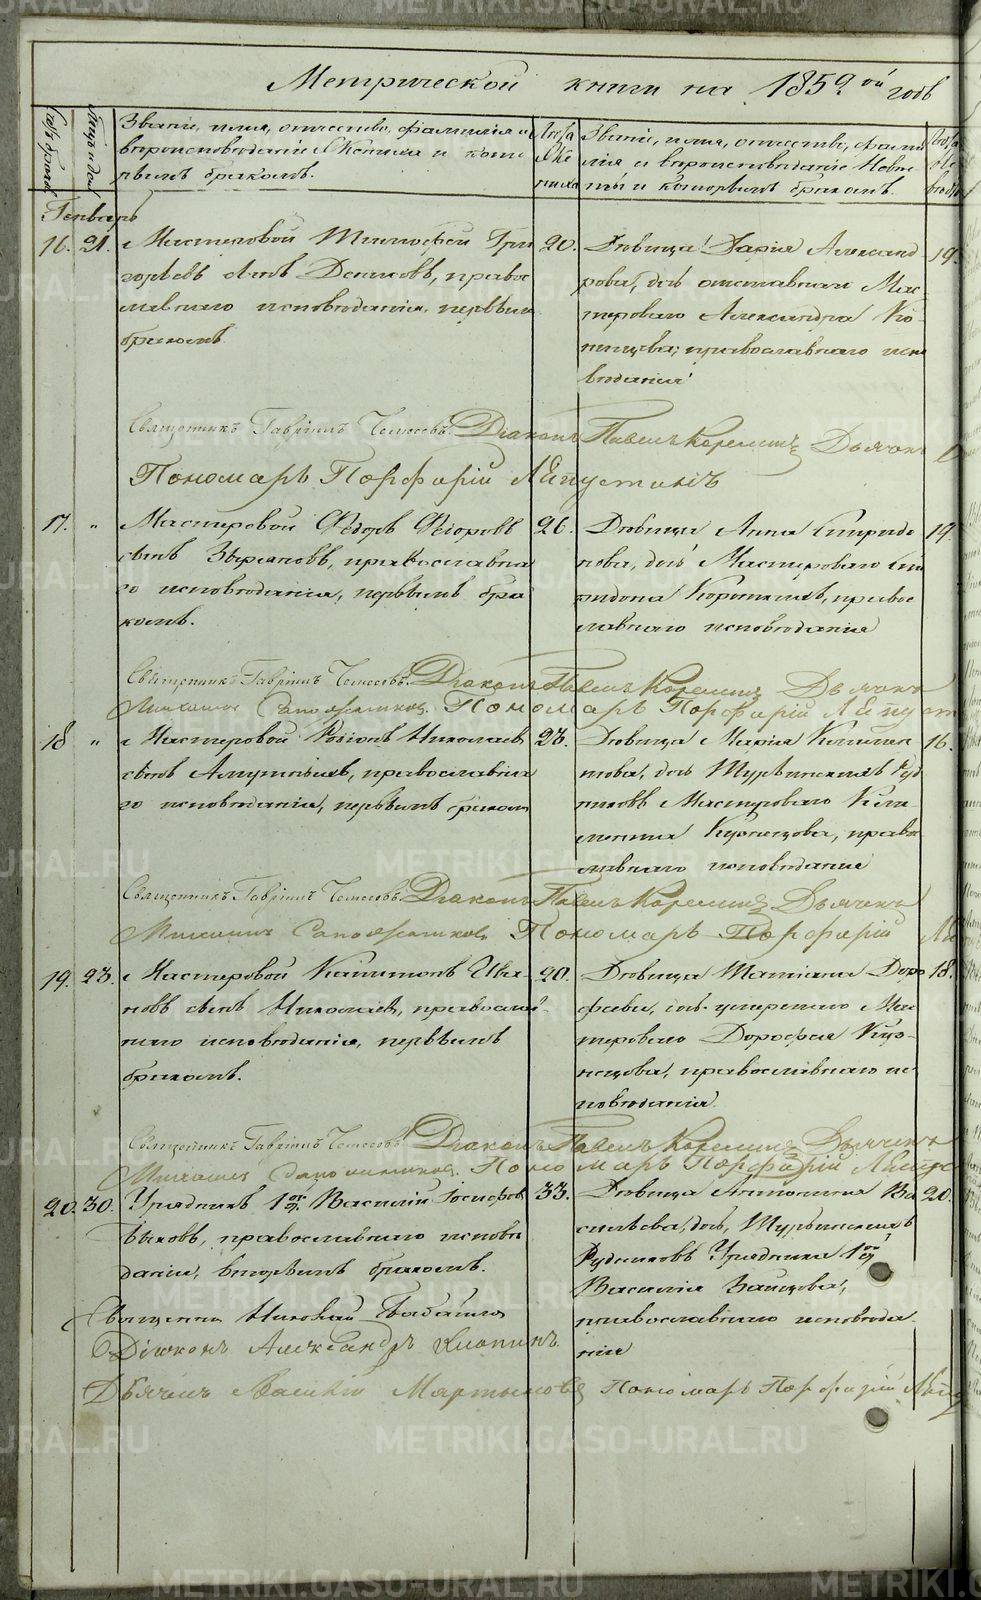 Метрической книги на 1859.ой годъ
Счетъ браковъ
Мѣсяцъ и день
Званіе, имя, отчество, фамилія и
вѣроисповѣданіе Жениха и кото
рымъ бракомъ.
Лѣта
Же
ниха
Званіе, имя, отчество, фами
лія и вѣроисповѣданіе Невѣ
сты и которымъ бракомъ.
Лѣта
Не
вѣсты
Генварь
16. 21. Мастеровой Тимофей Гри
горьевъ сынъ Денисовъ, правос
лавнаго исповѣданія, первымъ
бракомъ
20.
Дѣвица Дарія Александ
рова, дочь отставнаго Мас
тероваго Александра Ко
пенцева, православнаго испо
вѣданія
19.
Священникъ Гавріилъ Діаконъ Павелъ Карелинъ Дьячекъ
Пономарь Порфирій
17. " Мастеровой Федоръ Федоровъ
сынъ Зыряновъ, православна
го исповѣданія, первымъ бра
комъ.
26.
Дѣвица Анна Спиридо
нова, дочь Мастероваго Спи
ридона Коротаева, правос
лавнаго исповѣданія
19.
Священникъ Гавріилъ Діаконъ Павелъ Карелинъ Дьячекъ
Михаилъ Сапожниковъ Пономарь Порфирій
18 " Мастеровой Родіонъ Николаевъ
сынъ православна
го исповѣданія, первымъ бракомъ
23.
Дѣвица Марія Климен
това, дочь Турьинскихъ Руд
никовъ Мастероваго Кли
ментія Кузнецова, право
славнаго исповѣданія
16.
Священникъ Гавріилъ Діаконъ Павелъ Карелинъ Дьячекъ
Михаилъ Сапожниковъ Пономарь Порфирій
19. 23. Мастеровой Капитонъ Ива
новъ сынъ Николаевъ, православ
наго исповѣданія, первымъ
бракомъ.
20.
Дѣвица Татіана Доро
феева, дочь умершаго Мас
тероваго Дорофея Куз
нецова, православнаго ис
повѣданія.
18.
Священникъ Гавріилъ Діаконъ Павелъ Карелинъ Дьячекъ
Михаилъ Сапожниковъ Пономарь Порфирій
20. 30. Урядникъ 1 ст. Василій Іосифовъ
Быковъ, православнаго исповѣ
данія, вторымъ бракомъ.
33.
Дѣвица Антонина Ва
сильева, дочь Турьинскихъ
Рудниковъ Урядника 1 ст.
Василія Зайцова,
православнаго исповѣда
нія
20.
Священникъ Николай
Діаконъ Александръ
Дьячекъ Василій Мартыновъ Пономарь Порфирій
METRIKI.GASO-URAL.RU